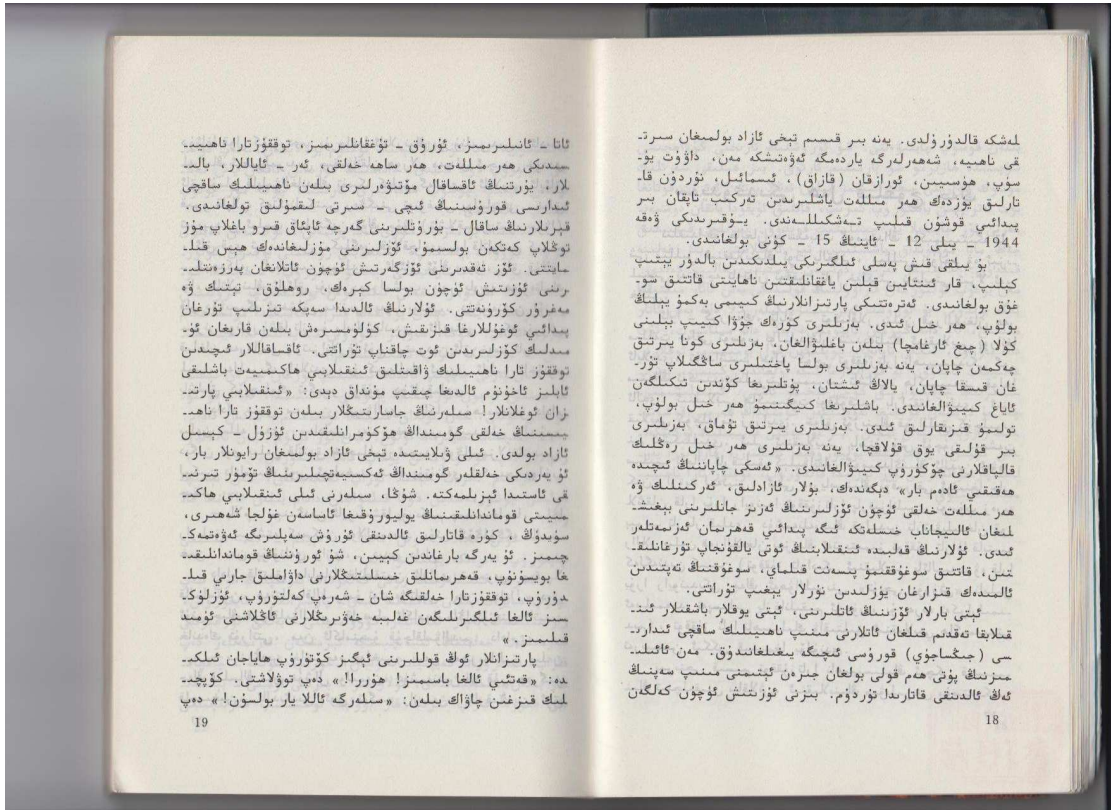 لەشكە قالدۇرۇلدى. يەنە بىر قىسىم تېخى ئازاد بولمىغان سىرت‍ـ
قى ناھىيە، شەھەرلەرگە ياردەمگە ئەۋەتىشكە مەن، داۋۇت يۈ‍ـ
سۈپ، ھۈسىيىن، ئورازقان (قازاق)، ئىسمائىل، نۇردۇن قا‍ـ
تارلىق يۈزدەك ھەر مىللەت ياشلىرىدىن تەركىب تاپقان بىر
پىدائىي قوشۇن قىلىپ تـەشكىللـەندى. يـۇقىرىدىكى ۋەقە
1944 ـ يىلى 12 ـ ئاينىڭ 15 ـ كۈنى بولغانىدى.
بۇ يىلقى قىش پەسلى ئىلگىرىكى يىلدىكىدىن بالدۇر يېتىپ
كېلىپ، قار ئىنتايىن قېلىن ياغقانلىقتىن ناھايىتى قاتتىق سو‍ـ
غۇق بولغانىدى. ئەترەتتىكى پارتىزانلارنىڭ كىيىمى يەكمۇ يېلىڭ
بولۇپ، ھەر خىل ئىدى. بەزىلىرى كۆرەك جۇۋا كىيىپ بېلىنى
كۇلا (چىغ ئارغامچا) بىلەن باغلىۋالغان، بەزىلىرى كونا يىرتىق
چەكمەن چاپان، يەنە بەزىلىرى بولسا پاختىلىرى ساڭگىلاپ تۇر‍ـ
غان قىسقا چاپان، يالاڭ ئىشتان، پۇتلىرىغا كۆندىن تىكىلگەن
ئاياغ كىيىۋالغانىدى. باشلىرىغا كىيگىنىمۇ ھەر خىل بولۇپ،
تولىمۇ قىزىقارلىق ئىدى. بەزىلىرى يىرتىق تۇماق، بەزىلىرى
بىر قۇلىقى يوق قۇلاقچا، يەنە بەزىلىرى ھەر خىل رەڭلىك
قالپاقلارنى چۆكۈرۈپ كىيىۋالغانىدى. «ئەسكى چاپاننىڭ ئىچىدە
ھەقىقىي ئادەم بار» دېگەندەك، بۇلار ئازادلىق، ئەركىنلىك ۋە
ھەر مىللەت خەلقى ئۈچۈن ئۆزلىرىنىڭ ئەزىز جانلىرىنى بېغىش‍ـ
لىغان ئالىيجاناب خىسلەتكە ئىگە پىدائىي قەھرىمان ئەزىمەتلەر
ئىدى. ئۇلارنىڭ قەلبىدە ئىنقىلابنىڭ ئوتى يالقۇنجاپ تۇرغانلىق‍ـ
تىن، قاتتىق سوغۇققىمۇ پىسەنت قىلماي، سوغۇقنىڭ تەپتىدىن
ئالمىدەك قىزارغان يۈزلىدىن نۇرلار يېغىپ تۇراتتى.
ئېتى بارلار ئۆزىنىڭ ئاتلىرىنى، ئېتى يوقلار باشقىلار ئىن‍ـ
قىلابقا تەقدىم قىلغان ئاتلارنى مىنىپ ناھىيىلىك ساقچى ئىدارى‍ـ
سى (جىڭساجۈي) قورۇسى ئىچىگە يىغىلغانىدۇق. مەن ئائىلى‍ـ
مىزنىڭ پۇتى ھەم قولى بولغان جىرەن ئېتىمنى مىنىپ سەپنىڭ
ئەڭ ئالدىنقى قاتارىدا تۇردۇم. بىزنى ئۇزىتىش ئۈچۈن كەلگەن
18
ئاتا ـ ئانىلىرىمىز، ئۇرۇق ـ تۇغقانلىرىمىز، توققۇزتارا ناھىيى‍ـ
سىدىكى ھەر مىللەت، ھەر ساھە خەلقى، ئەر ـ ئاياللار، بالى‍ـ
لار، يۇرتنىڭ ئاقساقال مۆتىۋەرلىرى بىلەن ناھىيىلىك ساقچى
ئىدارىسى قورۇسىنىڭ ئىچى ـ سىرتى لىقمۇلىق تولغانىدى.
قېرىلارنىڭ ساقال ـ بۇرۇتلىرىنى گەرچە ئاپئاق قىرو باغلاپ مۇز
توڭلاپ كەتكەن بولسىمۇ، ئۆزلىرىنى مۇزلىغاندەك ھېس قىل‍ـ
مايتتى. ئۆز تەقدىرىنى ئۆزگەرتىش ئۈچۈن ئاتلانغان پەرزەنتلى‍ـ
رىنى ئۇزىتىش ئۈچۈن بولسا كېرەك، روھلۇق، تېتىك ۋە
مەغرۇر كۆرۈنەتتى. ئۇلارنىڭ ئالدىدا سەپكە تىزىلىپ تۇرغان
پىدائىي ئوغۇللارغا قىزىقىش، كۈلۈمسىرەش بىلەن قارىغان ئۈ‍ـ
مىدلىك كۆزلىرىدىن ئوت چاقناپ تۇراتتى. ئاقساقاللار ئىچىدىن
توققۇز تارا ناھىيىلىك ۋاقىتلىق ئىنقىلابىي ھاكىمىيەت باشلىقى
ئابلىز ئاخۇنۇم ئالدىغا چىقىپ مۇنداق دېدى: «ئىنقىلابىي پارتى‍ـ
زان ئوغلانلار! سىلەرنىڭ جاسارىتىڭلار بىلەن توققۇز تارا ناھى‍ـ
يىسىنىڭ خەلقى گومىنداڭ ھۆكۈمرانلىقىدىن ئۈزۈل ـ كېسىل
ئازاد بولدى. ئىلى ۋىلايىتىدە تېخى ئازاد بولمىغان رايونلار بار،
ئۇ يەردىكى خەلقلەر گومىنداڭ ئەكسىيەتچىلىرىنىڭ تۆمۈر تىرنى‍ـ
قى ئاستىدا ئېزىلمەكتە. شۇڭا، سىلەرنى ئىلى ئىنقىلابىي ھاكى‍ـ
مىيىتى قوماندانلىقىنىڭ يوليورۇقىغا ئاساسەن غۇلجا شەھىرى،
سۈيدۈڭ، كۈرە قاتارلىق ئالدىنقى ئۇرۇش سەپلىرىگە ئەۋەتمەك‍ـ
چىمىز. ئۇ يەرگە بارغاندىن كېيىن، شۇ ئورۇننىڭ قوماندانلىقى‍ـ
غا بويسۇنۇپ، قەھرىمانلىق خىسلىتىڭلارنى داۋاملىق جارىي قىل‍ـ
دۇرۇپ، توققۇزتارا خەلقىگە شان ـ شەرەپ كەلتۈرۈپ، ئۈزلۈك‍ـ
سىز ئالغا ئىلگىرىلىگەن غەلىبە خەۋىرىڭلارنى ئاڭلاشنى ئۈمىد
قىلىمىز.»
پارتىزانلار ئوڭ قوللىرىنى ئېگىز كۆتۈرۈپ ھاياجان ئىلكى‍ـ
دە: «قەتئىي ئالغا باسىمىز! ھۇررا!» دەپ توۋلاشتى. كۆپچى‍ـ
لىك قىزغىن چاۋاك بىلەن: «سىلەرگە ئاللا يار بولسۇن!» دەپ
19